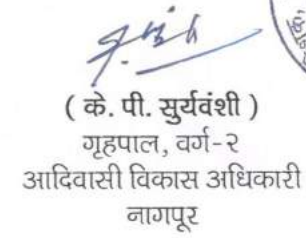 ( के. पी. सुर्यवंशी )
गृहपाल, वर्ग-२
आदिवासी विकास अधिकारी
नागपूर